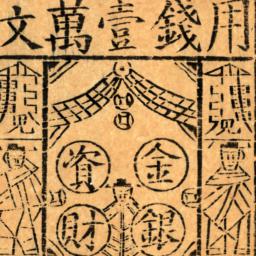 用錢壹萬文
金銀
資財